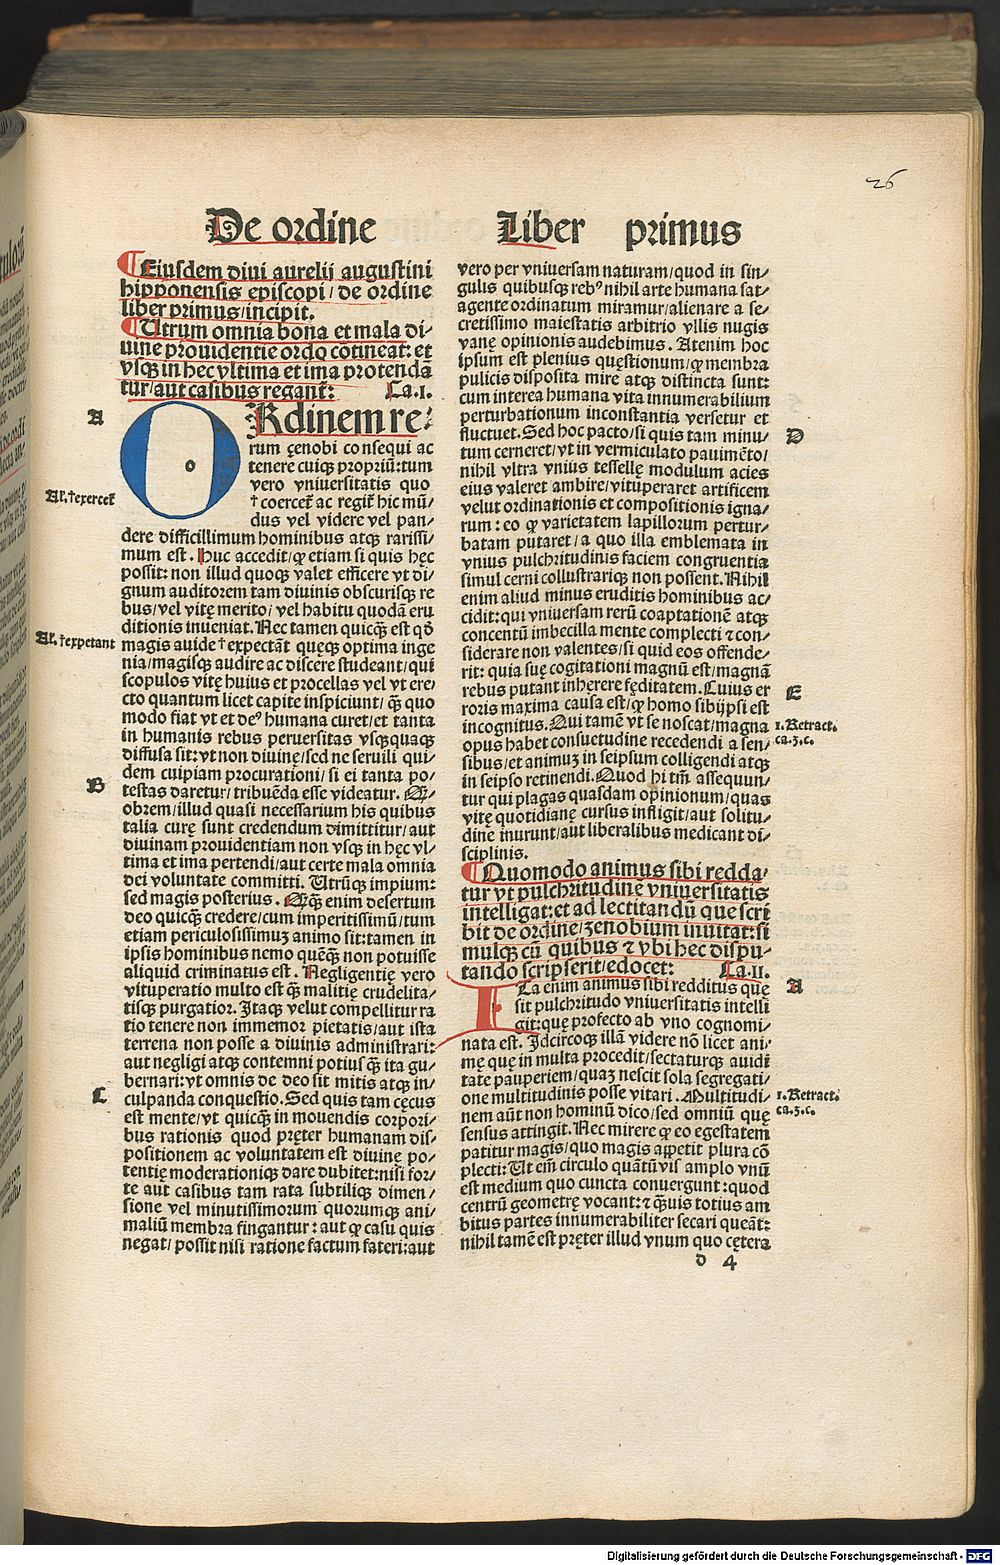 26
De ordine Liber primus
¶Eiusdem diui aurelii augustini
hipponensis episcopi/ de ordine
liber primus/incipit.
¶Utrum omnia bona et mala di-
uine prouidentie ordo cōtineat: et
vsqꝫ in hec vltima et ima protendā
tur/aut casibus regant᷑: Ca.I.
A
ORdinem re-
rum ęenobi consequi ac
tenere cuiqꝫ propriū:tum
vero vniuersitatis quo
Al.†exercet᷑
†coercet᷑ ac regit᷑ hic mū/
dus vel videre vel pan/
dere difficillimum hominibus atqꝫ rarissi-
mum est. Huc accedit/ꝙ etiam si quis hęc
possit: non illud quoqꝫ valet efficere vt di-
gnum auditorem tam diuinis obscurisqꝫ re
bus/vel vitę merito/ vel habitu quodā eru
ditionis inueniat. Nec tamen quicꝙ̄ est qđ
Al.†expetant
magis auide †expectāt quęqꝫ optima inge
nia/magisqꝫ audire ac discere studeant/qui
scopulos vitę huius et procellas vel vt ere/
cto quantum licet capite inspiciunt/ ꝙ̄ quo
modo fiat vt et deꝰ humana curet/et tanta
in humanis rebus peruersitas vsqꝫquaqꝫ
diffusa sit: vt non diuinę/sed ne seruili qui-
dem cuipiam procurationi/ si ei tanta po-
B
testas daretur/ tribuēda esse videatur. Qᷓ-
obrem/illud quasi necessarium his quibus
talia curę sunt credendum dimittitur/ aut
diuinam prouidentiam non vsqꝫ in hęc vl-
tima et ima pertendi/aut certe mala omnia
dei voluntate committi. Utrūqꝫ impium:
sed magis posterius. Qᷓqꝫ enim desertum
deo quicꝙ̄ credere/cum imperitissimū/tum
etiam periculosissimuꝫ animo sit: tamen in
ipsis hominibus nemo quēꝙ̄ non potuisse
aliquid criminatus est. Negligentię vero
vituperatio multo est ꝙ̄ malitię crudelita-
tisqꝫ purgatior. Itaqꝫ velut compellitur ra
tio tenere non immemor pietatis/aut ista
terrena non posse a diuinis administrari:
aut negligi atqꝫ contemni potius ꝙ̄ ita gu-
bernari: vt omnis de deo sit mitis atqꝫ in/
C
culpanda conquestio. Sed quis tam cęcus
est mente/vt quicꝙ̄ in mouendis corpori/
bus rationis quod pręter humanam dis-
positionem ac voluntatem est diuinę po-
tentię moderationiqꝫ dare dubitet: nisi for/
te aut casibus tam rata subtiliqꝫ dimen/
sione vel minutissimorum quorumqꝫ ani-
maliū membra fingantur: aut ꝙ casu quis
negat/ possit nisi ratione factum fateri: aut
vero per vniuersam naturam/quod in sin-
gulis quibusqꝫ rebꝰ nihil arte humana sat-
agente ordinatum miramur/alienare a se-
cretissimo maiestatis arbitrio vllis nugis
vanę opinionis audebimus. Atenim hoc
ipsum est plenius quęstionum/ꝙ membra
pulicis disposita mire atqꝫ distincta sunt:
cum interea humana vita innumerabilium
perturbationum inconstantia versetur et
fluctuet. Sed hoc pacto/si quis tam minu/
D
tum cerneret/vt in vermiculato pauimēto/
nihil vltra vnius tessellę modulum acies
eius valeret ambire/vituperaret artificem
velut ordinationis et compositionis igna/
rum: eo ꝙ varietatem lapillorum pertur/
batam putaret/ a quo illa emblemata in
vnius pulchritudinis faciem congruentia
simul cerni collustrariqꝫ non possent. Nihil
enim aliud minus eruditis hominibus ac/
cidit: qui vniuersam rerū coaptationē atqꝫ
concentū imbecilla mente complecti ⁊ con-
siderare non valentes/si quid eos offende/
rit: quia suę cogitationi magnū est/magnā
rebus putant inhęrere fęditatem. Cuius er
E
roris maxima causa est/ꝙ homo sibiipsi est
incognitus. Qui tamē vt se noscat/magna
1.Retract.
ca.3.c.
opus habet consuetudine recedendi a sen/
sibus/et animuꝫ in seipsum colligendi atqꝫ
in seipso retinendi. Quod hi tm̄ assequun/
tur qui plagas quasdam opinionum/quas
vitę quotidianę cursus infligit/aut solitu/
dine inurunt/aut liberalibus medicant di/
sciplinis.
¶Quomodo animus sibi redda/
tur vt pulchritudinē vniuersitatis
intelligat: et ad lectitandū que scri
bit de ordine/zenobium inuitat: si
mulqꝫ cū quibus ⁊ vbi hec dispu-
tando scripserit/edocet: Ca.II.
A
ITa enim animus sibi redditus quę
sit pulchritudo vniuersitatis intelli
git: quę profecto ab vno cognomi/
nata est. Idcircoqꝫ illā videre nō licet ani/
mę quę in multa procedit/sectaturqꝫ auidi
tate pauperiem/quaꝫ nescit sola segregati/
one multitudinis posse vitari. Multitudi-
1.Retract.
ca.3.c.
nem aūt non hominū dico/sed omniū quę
sensus attingit. Nec mirere ꝙ eo egestatem
patitur magis/quo magis appetit plura cō
plecti: Ut em̄ circulo quātūvis amplo vnū
est medium quo cuncta conuergunt: quod
centrū geometrę vocant: ⁊ ꝙ̄uis totius am
bitus partes innumerabiliter secari queāt:
nihil tamē est pręter illud vnum quo cętera
d 4
Digitalisierung gefördert durch die Deutsche Forschungsgemeinschaft - DFG